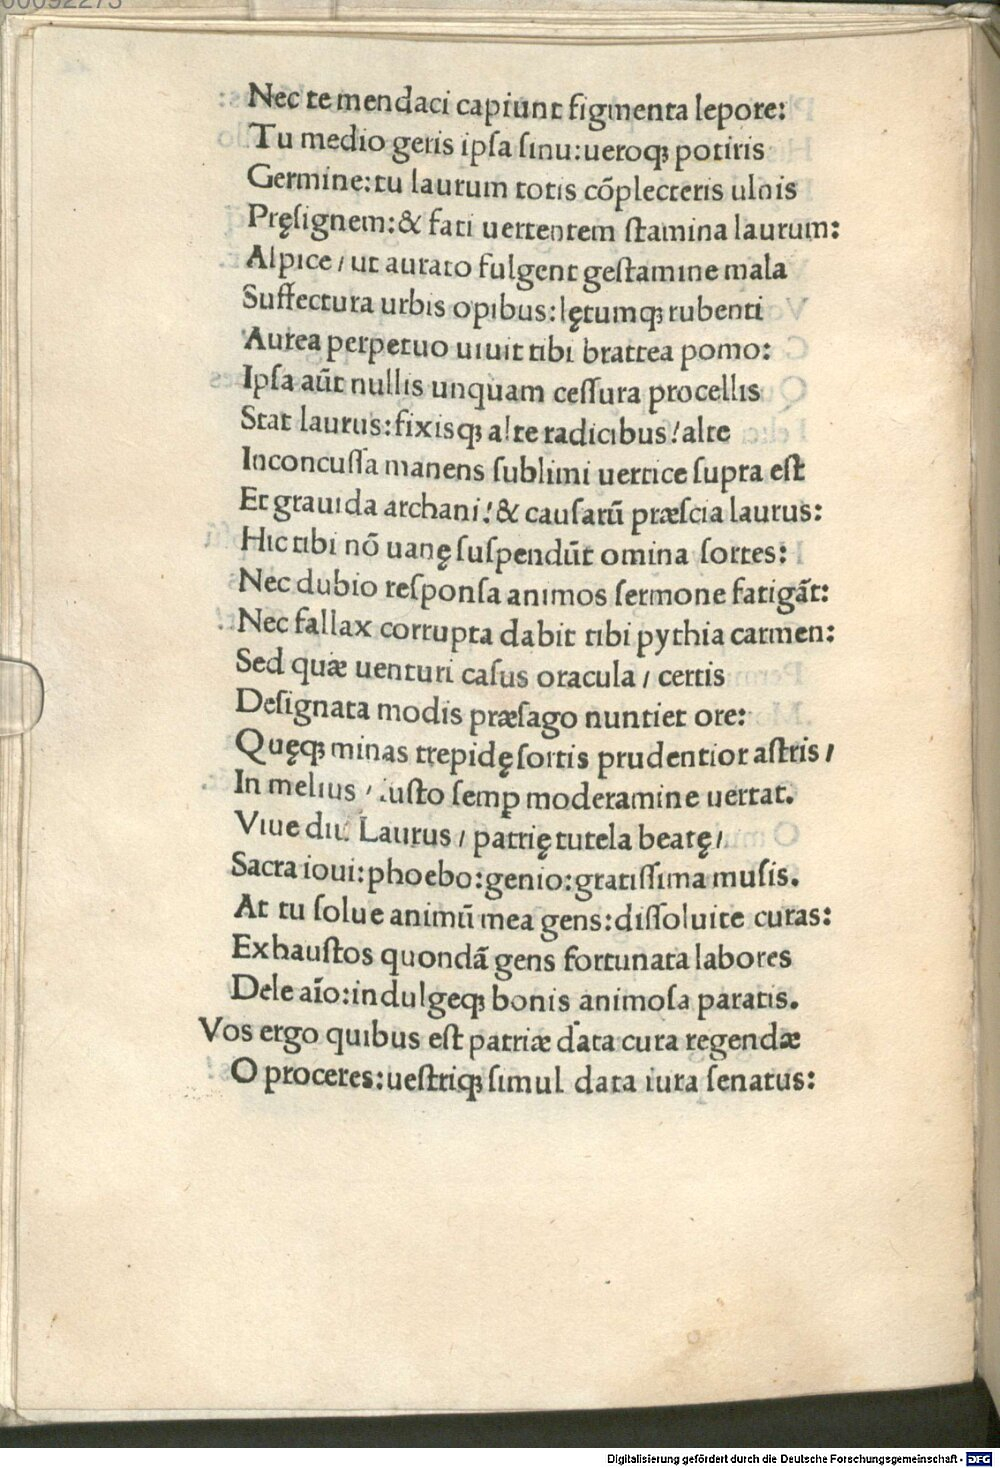 00092273
Nec te mendaci capiunt figmenta lepore:
Tu medio geris ipſa ſinu:ueroqꝫ potiris
Germine:tu laurum totis cōplecteris ulnis
Pręſignem:& fati uertentem ſtamina laurum:
Aſpice / ut aurato fulgent geſtamine mala
Suffectura urbis opibus:lętumqꝫ rubenti
Aurea perpetuo uiuit tibi brattea pomo:
Ipſa aūt nullis unquam ceſſura procellis
Stat laurus:fixisqꝫ alte radicibus! alte
Inconcuſſa manens ſublimi uertice ſupra eſt
Et grauida archani! & cauſarū præſcia laurus:
Hic tibi nō uanę ſuſpendūt omina ſortes:
Nec dubio reſponſa animos ſermone fatigāt:
Nec fallax corrupta dabit tibi pythia carmen:
Sed quæ uenturi caſus oracula / certis
Deſignata modis præſago nuntiet ore:
Quęqꝫ minas trepidę ſortis prudentior aſtris /
In melius / iuſto ſemꝑ moderamine uertat.
Viue diu Laurus / patrię tutela beatę /
Sacra ioui:phoebo:genio:gratiſſima muſis.
At tu ſolue animū mea gens:diſſoluite curas:
Exhauſtos quondā gens fortunata labores
Dele aīo:indulgeqꝫ bonis animoſa paratis.
Vos ergo quibus eſt patriæ data cura regendæ
O proceres:ueſtriqꝫ ſimul data iura ſenatus:
Digitalisierung gefördert durch die Deutsche Forschungsgemeinschaft - DFG